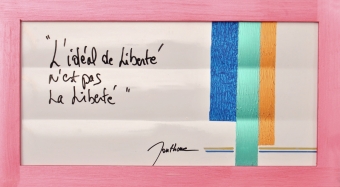 "L'idéal de Liberté
n'est pas
La Liberté"